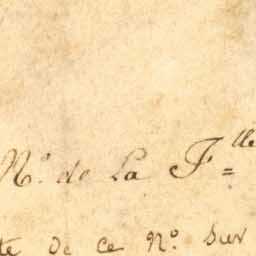 N.º de la F.lle
te de ce N.º sur